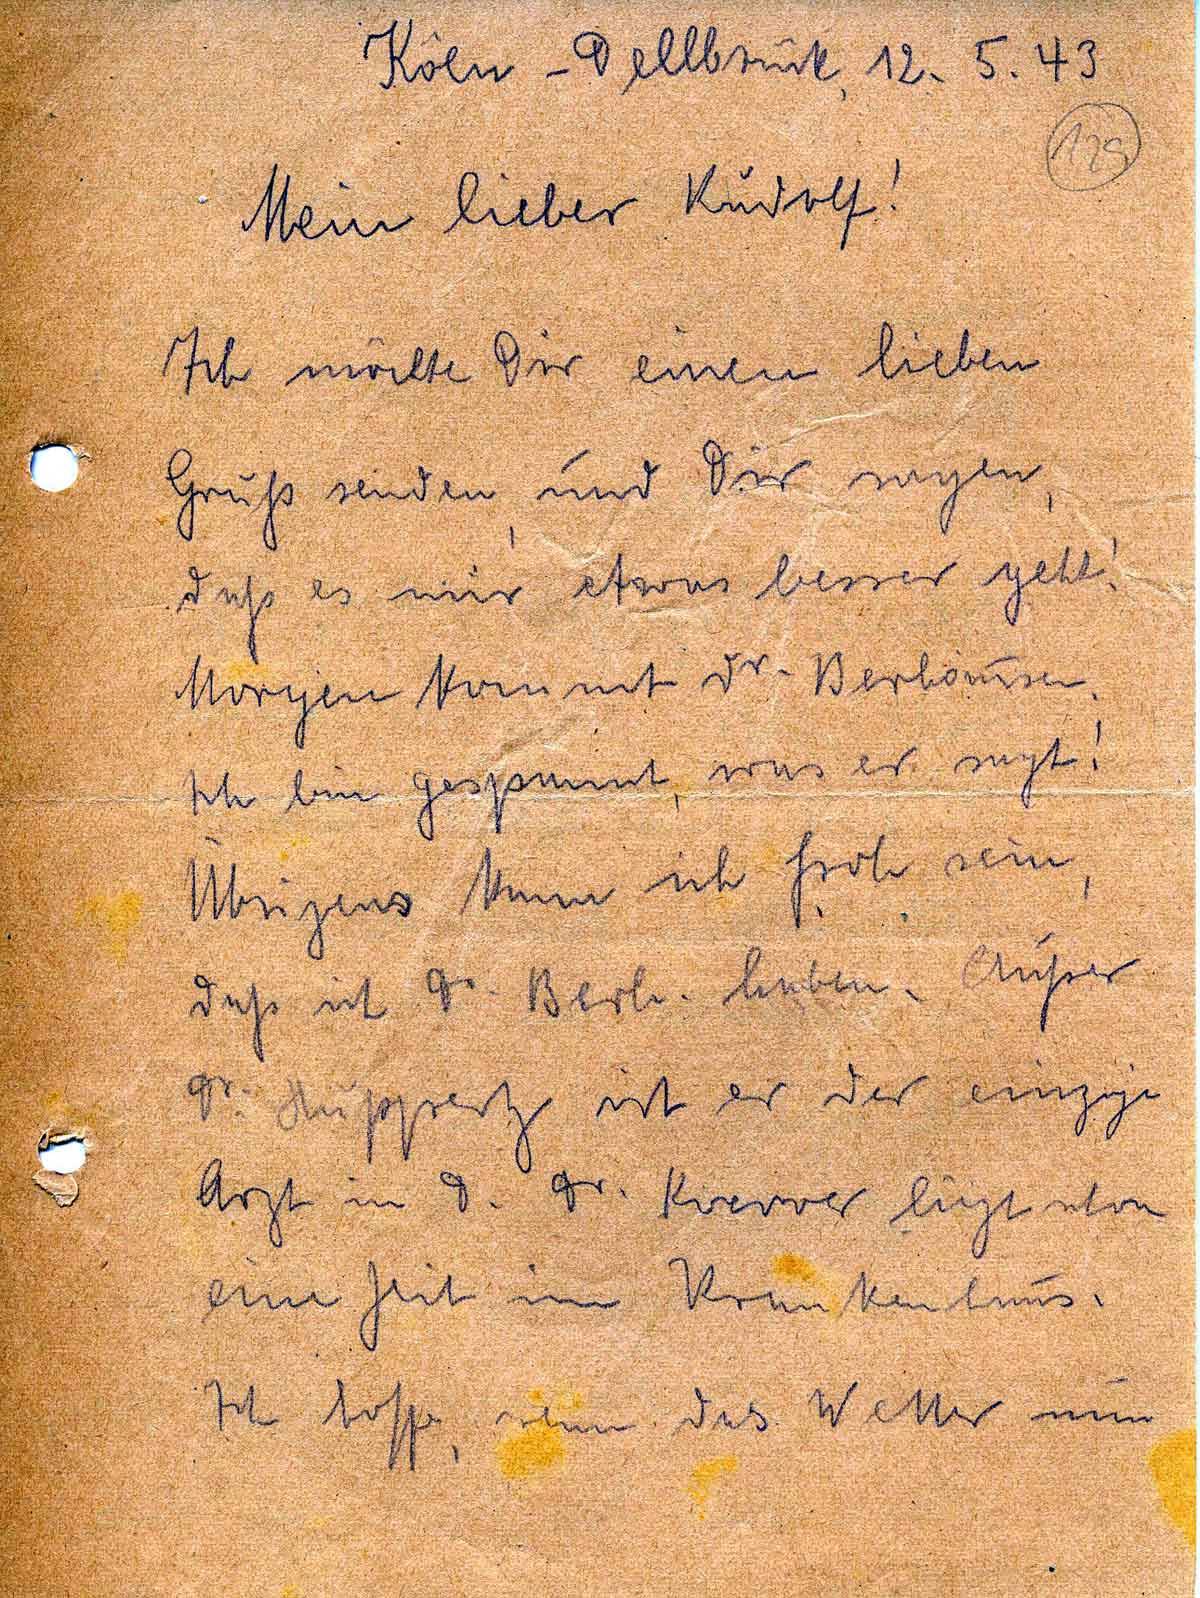 Köln-Dellbrück, 12. 5. 43
129
Mein lieber Rudolf!
Ich möchte Dir einen lieben
Gruß senden, und Dir sagen,
daß es mir etwas besser geht!
Morgen kommt Dr.
Ich bin gespannt, was er sagt!
Übrigens kann ich froh sein,
daß ich Dr. Berh. haben. Außer
Dr. Huppertz ist er der einzige
Arzt in D. Dr. liegt schon
eine Zeit im Krankenhaus.
Ich hoffe, wenn das Wetter nun